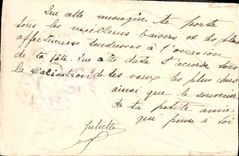 Que cette messagère te porte
tous les meilleurs baisers et les plus
affectueuses tendresses à l'occasion
de ta fête. Que cette date t'accorde tous
la réalisation de tes vœux les plus chers
ainsi que le souvenir
de ta petite amie
qui pense à toi
Juliette